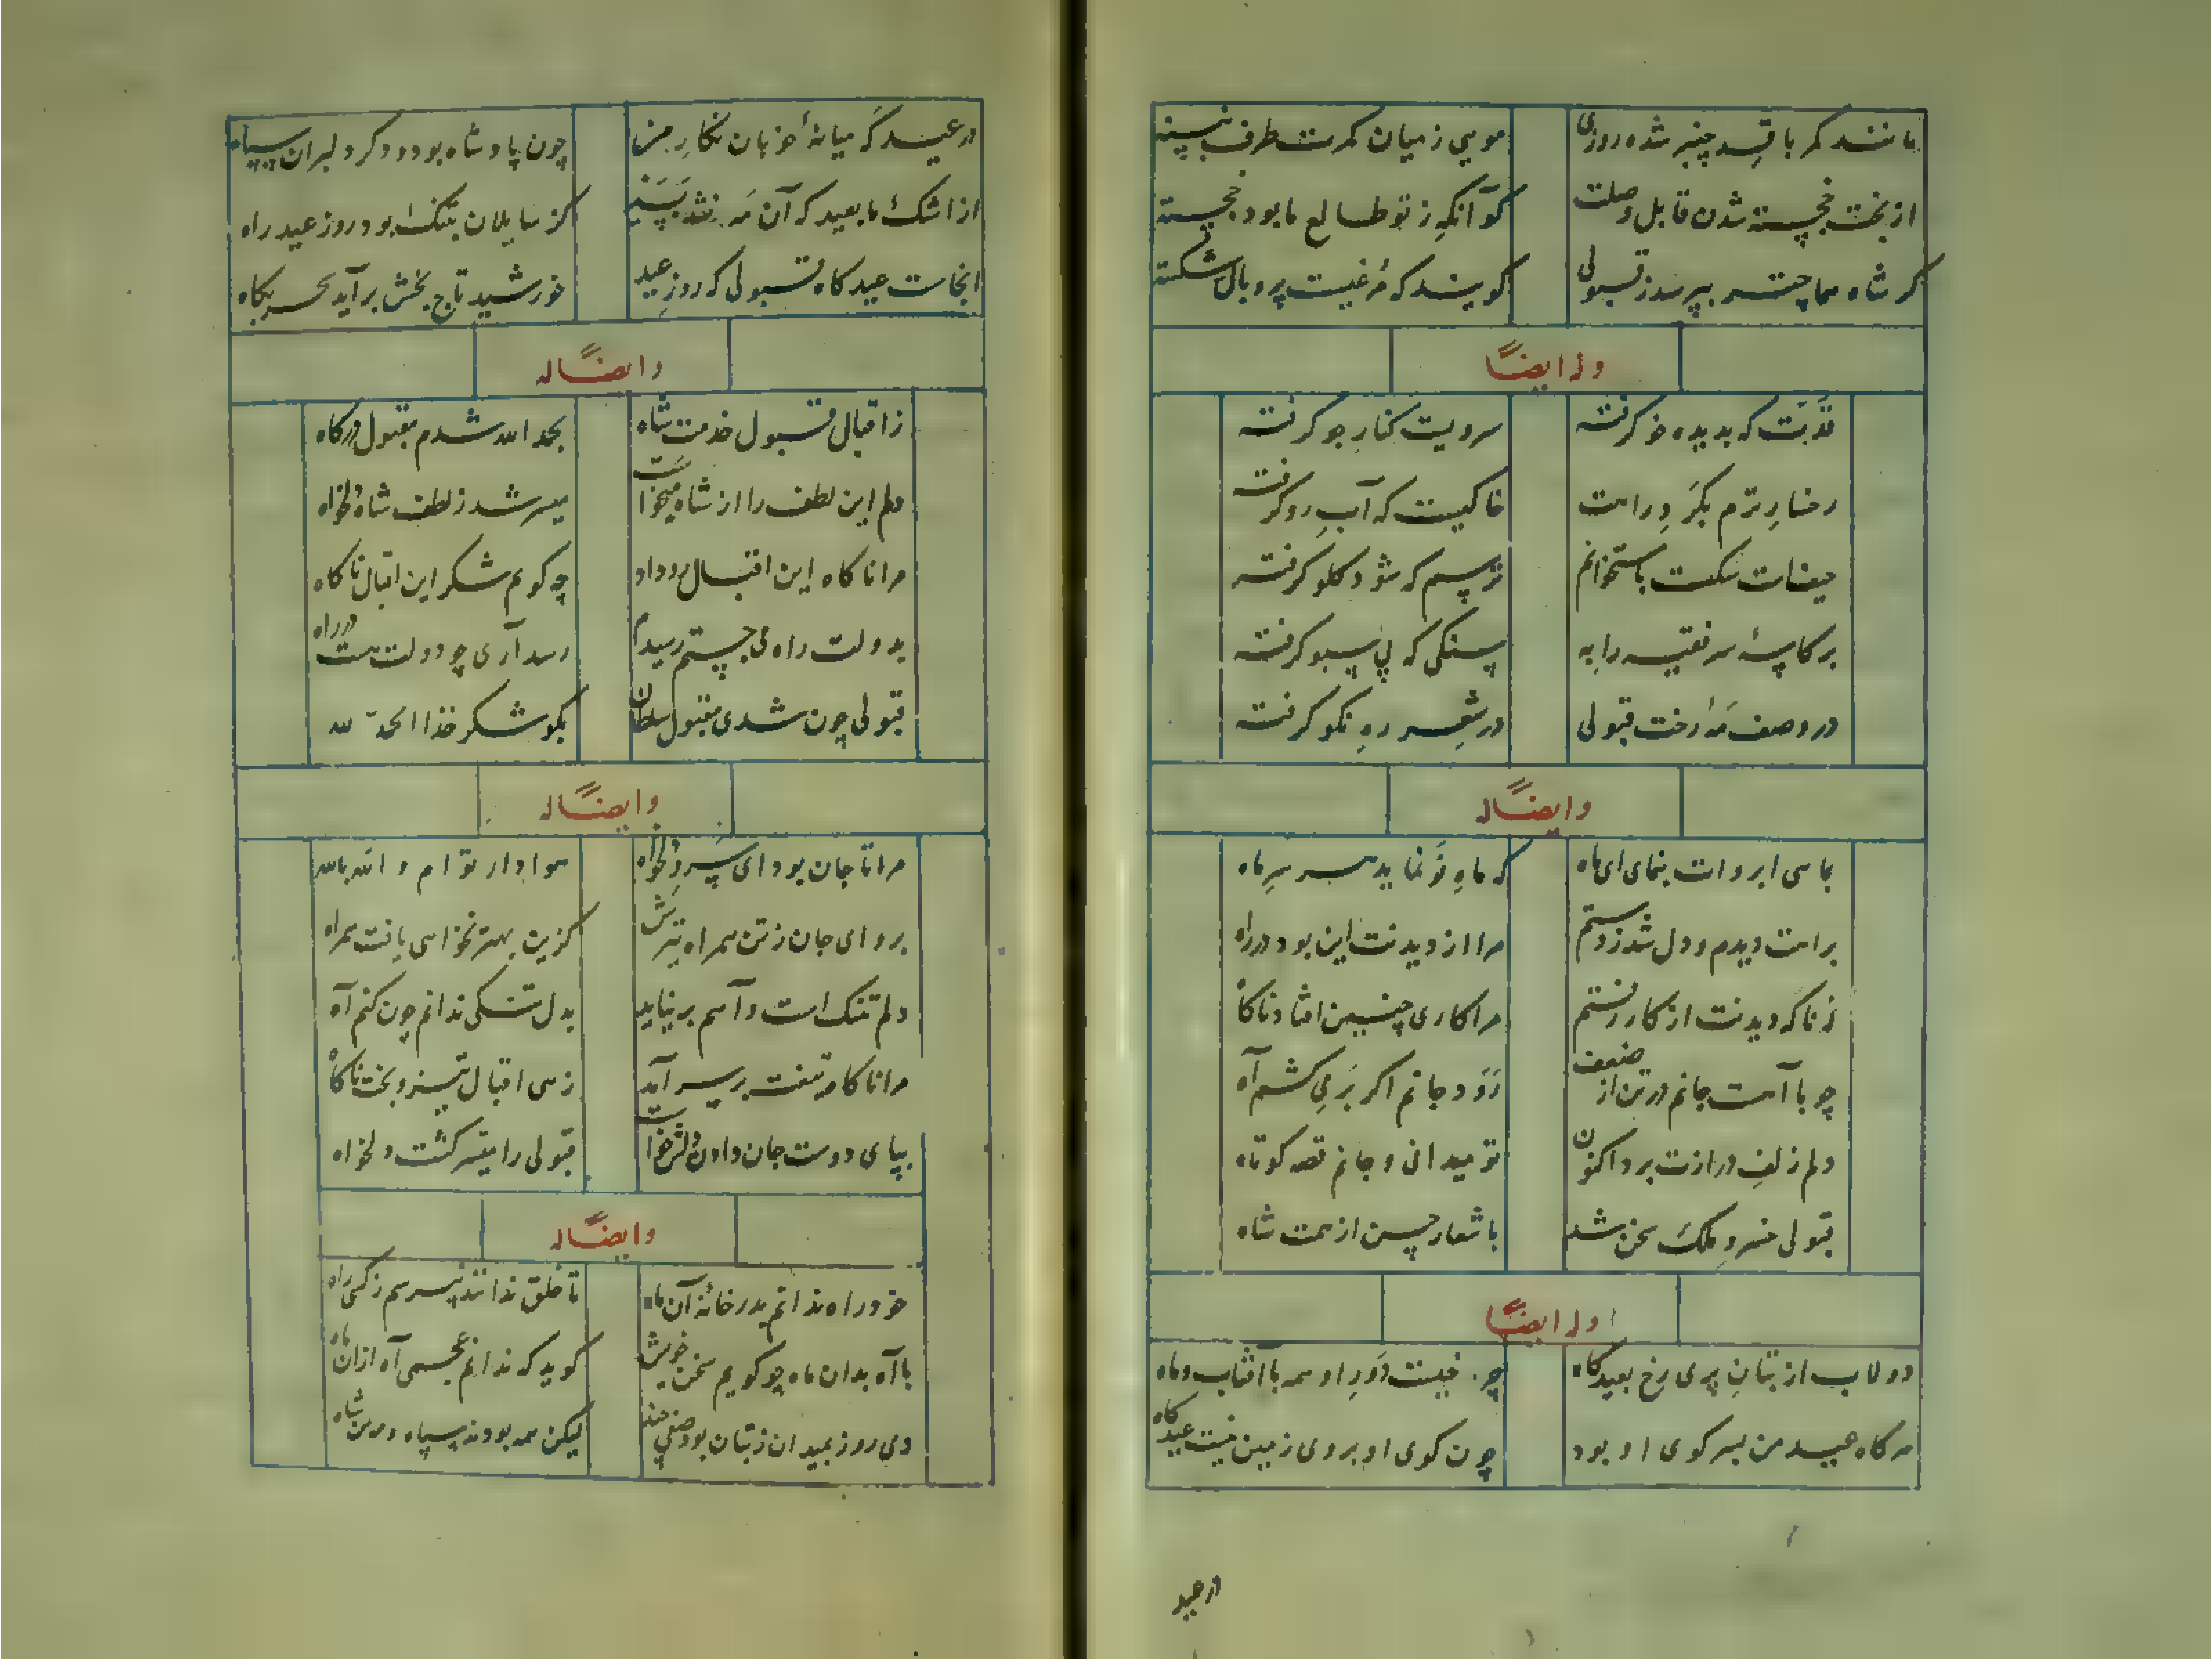 مانند کمر باقد چنبر شده روزی
مویی ز میان کمرت طرف نبسته
از بخت خجسته شدن قابل وصلت
کو آنکه ز تو طالع ما بود خجسته
کر شاه سما چتر بپرسد ز قبولی
کویند که مرغیست پر و بال شکسته
وله ایضاً
قدت که بدیده خو کرفته
سرویست کنار جو کرفته
رخسار ترم بکرد راهت
خاکیست که آب رو کرفته
حیفات سکت باستخوانم
ترسم که شود کلو کرفته
بر کاسهٔ سر فقیه را به
سنکی که پی سبو کرفته
در وصف مه رخت قبولی
در شعر ره نکو کرفته
وایضاً له
بماهی ابروات بنمای ای ماه
که ماه نو نماید هر سر ماه
براهت دیدم و دل شد ز دستم
مرا از دیدنت این بود در راه
ز ناکه دیدنت از کار رفتم
مرا کاری چنین افتاد ناکاه
چو با آهست جانم در تن از ضعف
رود جانم اکر بر می کشم آه
دلم زلف درازت برد اکنون
تو میدانی و جانم قصه کوتاه
قبولی خسرو ملک سخن شد
باشعار حسن از همت شاه
وله ایضاً
دولاب از بتان پری رخ بعیدکاه
چرخیست دور او همه با آفتاب و ماه
هر کاه عید من بسر کوی او بود
چون کوی او بروی زمین نیست عیدکاه
در عید
در عید کر میانهٔ خوبان نکار من
چون پادشاه بود و دکر دلبران سپاه
از اشک ما بعید که آن مه نشد
کز سایلان بتنک بود روز عید راه
انجاست عید کاه قبولی که روز عید
خورشید تاج بخش برآید سحرکاه
وایضاً له
ز اقبال قبول خدمت شاه
بحمد الله شدم مقبول درکاه
دلم این لطف را از شاه میخواست
میسر شد ز لطف شاه دلخواه
مرا ناکاه این اقبال رو داد
چه کویم شکر این اقبال ناکاه
بدولت راه می جستم رسیدم
رسد آری چو دولت هست در راه
قبولی چون شدی مقبول سلطان
بکو شکر خدا الحمد لله
وایضاً له
مرا تا جان بود ای سرو دلخواه
هوادار توام والله بالله
برو ای جان ز تن همراه تیرش
کزین بهتر نخواهی یافت همراه
دلم تنک است و آهم بر نیاید
بدل تنکی ندانم چون کنم آه
مرا ناکاه تیغت بر سر آمد
زهی اقبال تیز و بخت ناکاه
بپای دوست جان دادن دلش خواست
قبولی را میسر کشت دلخواه
وایضاً له
خود راه ندانم بدر خانهٔ آن ماه
تا خلق ندانند بپرسم ز کسی راه
با آه بدان ماه چو کویم سخن خویش
کوید که ندانم عجمی آه ازان ماه
دی روز بمیدان ز بتان بود صفی چند
لیکن همه بودند سپاه و مه من شاه